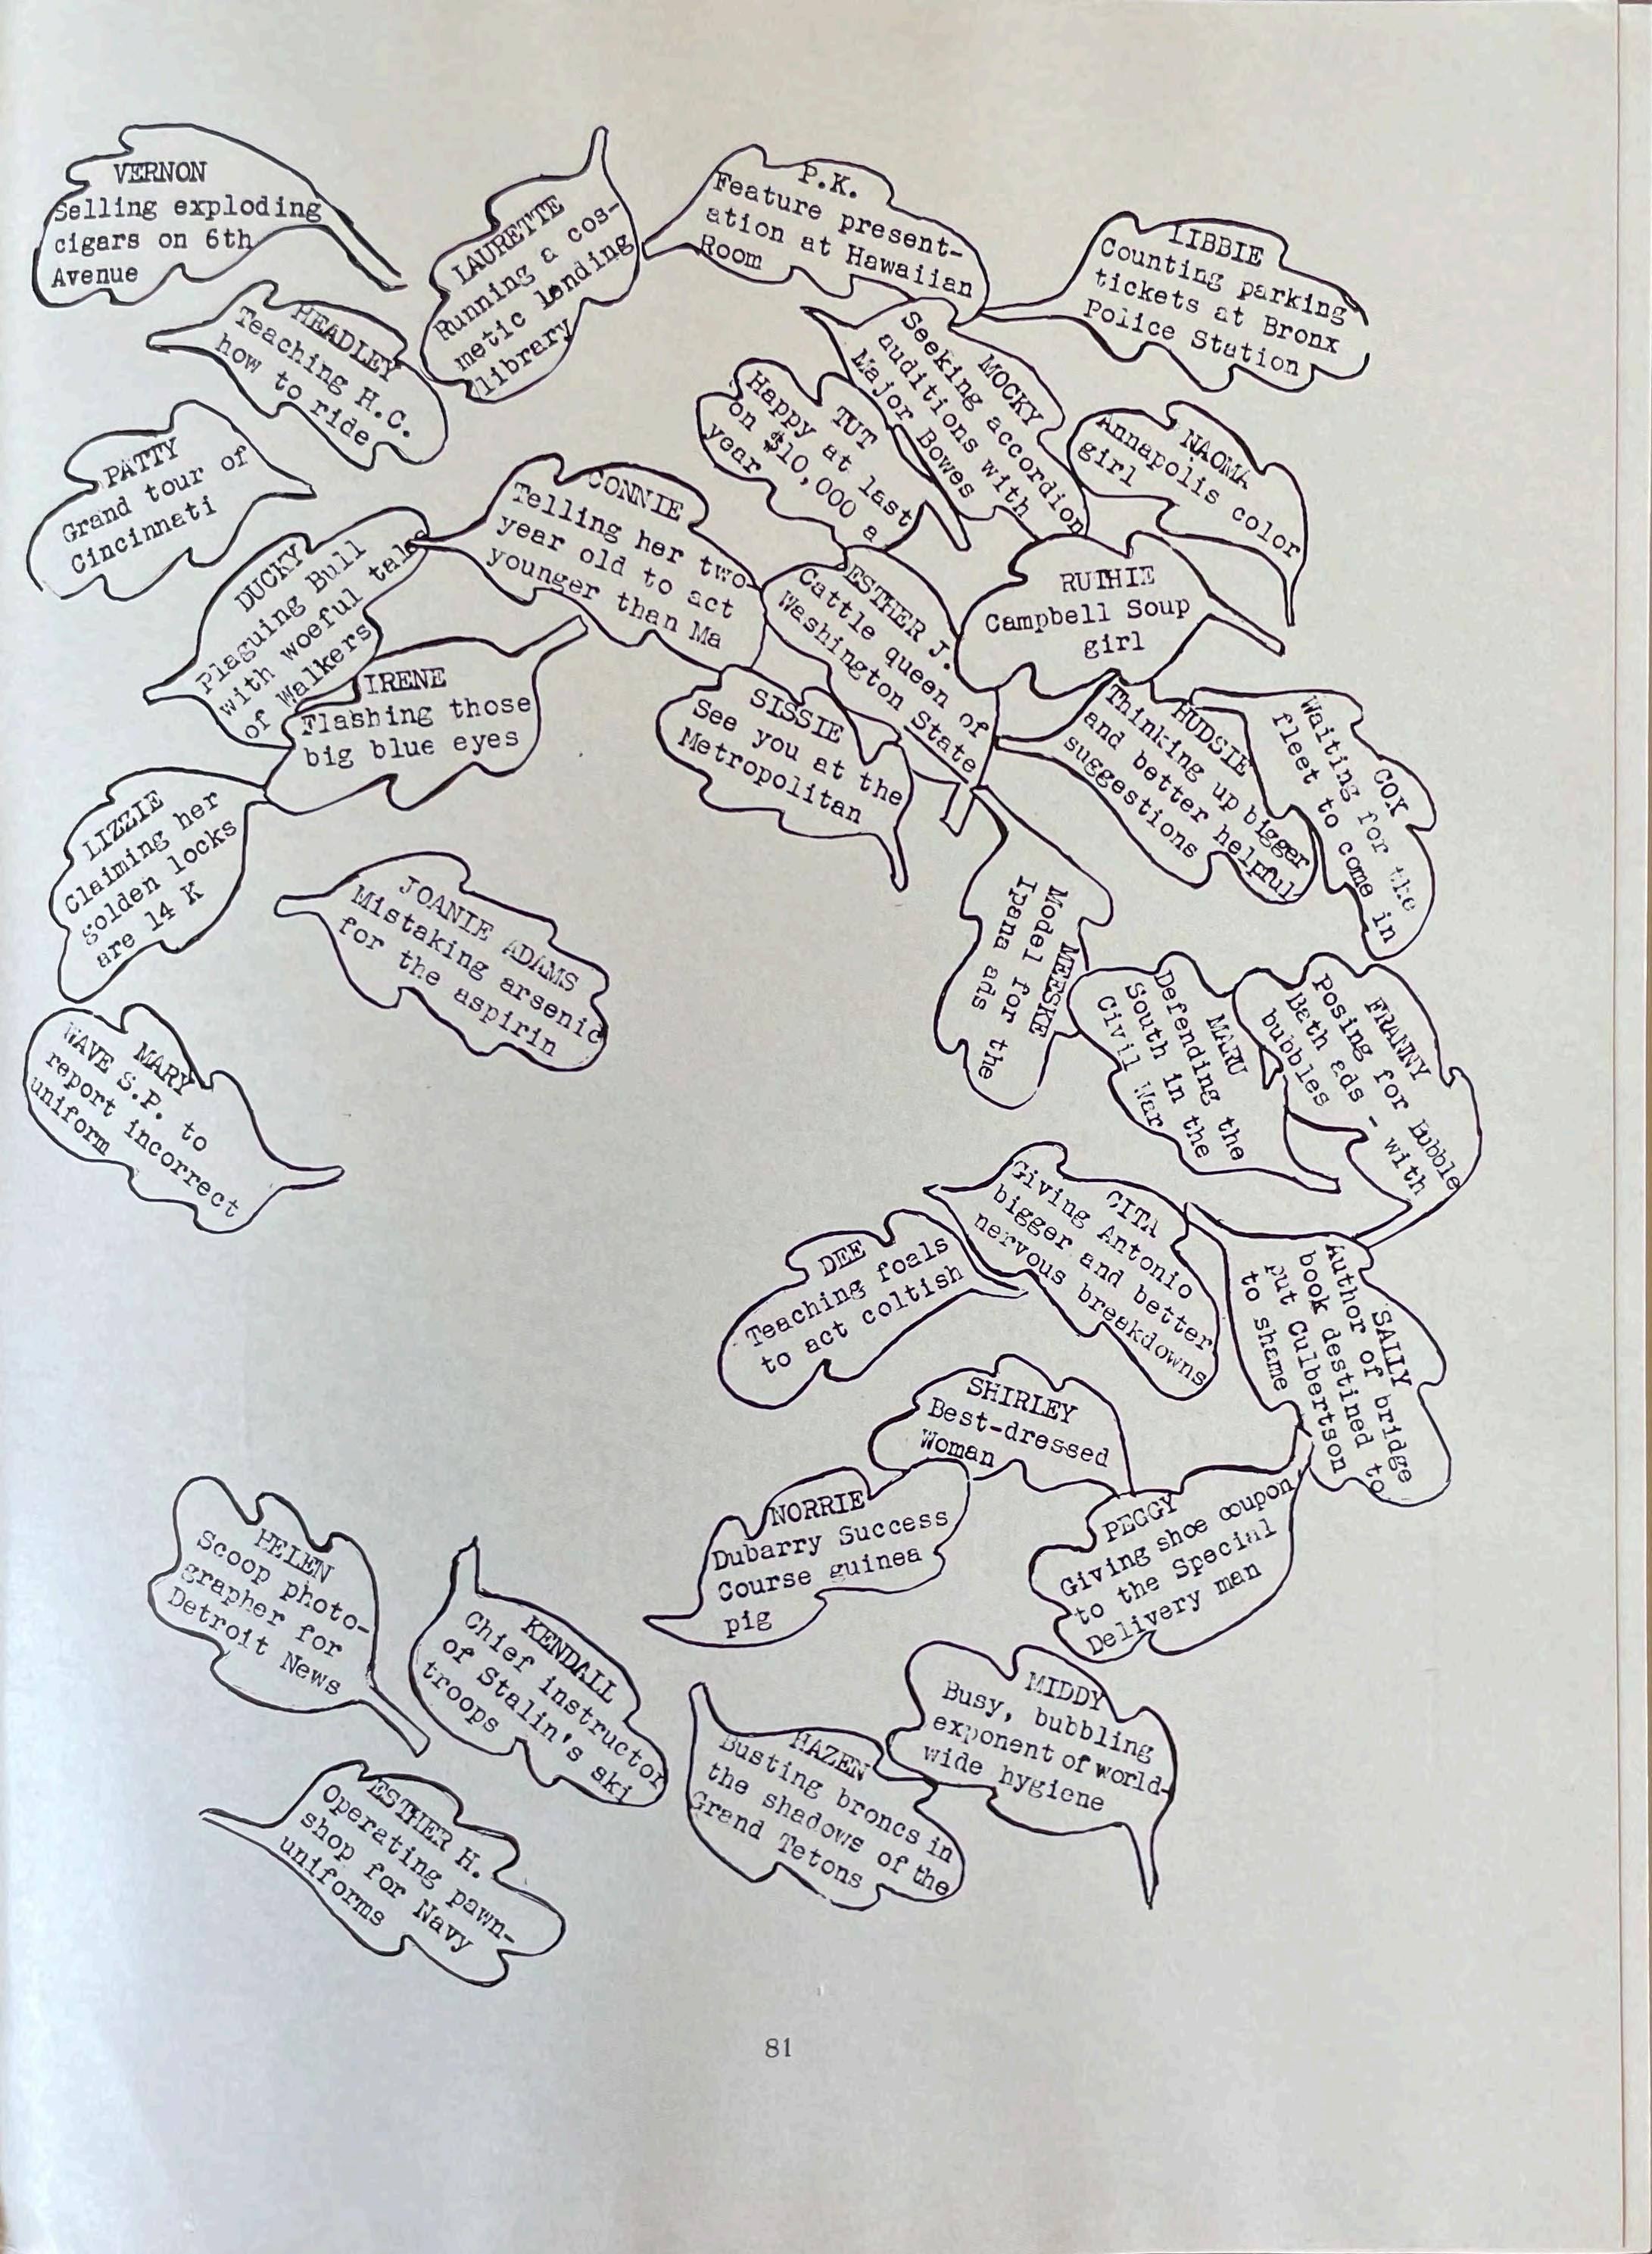 VERNON
Selling exploding
cigars on 6th
Avenue
LAURETTE
Running a cos-
metic lending
library
P.K.
Feature present-
ation at Hawaiian
Room
LIBBIE
Counting parking
tickets at Bronx
Police Station
HEADLEY
Teaching H.C.
how to ride
MOCKY
Seeking accordion
auditions with
Major Bowes
TUT
Happy at last
on $10,000 a
year
NAOMA
Annapolis color
girl
PATTY
Grand tour of
Cincinnati
CONNIE
Telling her two-
year old to act
younger than Ma
DUCKY
Plaguing Bull
with woeful tale
of Walkers
ESTHER J.
Cattle queen of
Washington State
RUTHIE
Campbell Soup
girl
IRENE
Flashing those
big blue eyes
SISSIE
See you at the
Metropolitan
HUDSIE
Thinking up bigger
and better helpful
suggestions
COX
Waiting for the
fleet to come in
LIZZIE
Claiming her
golden locks
are 14 K
JOANIE ADAMS
Mistaking arsenic
for the aspirin
MEESKE
Model for the
Ipana ads
MARU
Defending the
South in the
Civil War
FRANNY
Posing for Bubble
Bath ads - with
bubbles
MARY
WAVE S.P. to
report incorrect
uniform
CITA
Giving Antonio
bigger and better
nervous breakdowns
DEE
Teaching foals
to act coltish
SALLY
Author of bridge
book destined to
put Culbertson
to shame
SHIRLEY
Best-dressed
Woman
NORRIE
Dubarry Success
Course guinea
pig
PEGGY
Giving shoe coupon
to the Special
Delivery man
HELEN
Scoop photo-
grapher for
Detroit News
KENDALL
Chief instructor
of Stalin's ski
troops
MIDDY
Busy, bubbling
exponent of world-
wide hygiene
HAZEN
Busting broncs in
the shadows of the
Grand Tetons
ESTHER H.
Operating pawn-
shop for Navy
uniforms
81